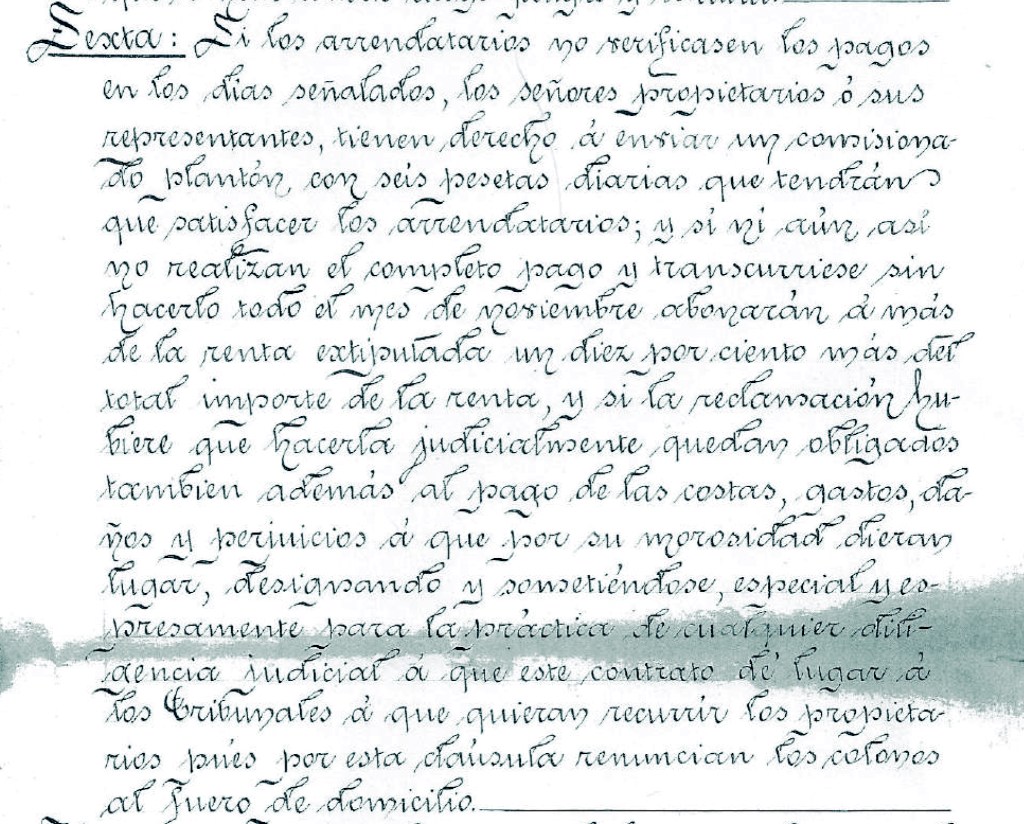 Sexta: Si los arrendatarios no verificasen los pagos
en los dias señalados, los señores propietarios ó sus
representantes, tienen derecho á enviar un comisiona-
do plantón, con seis pesetas diarias que tendrán
que satisfacer los arrendatarios; y si ni aún así
no realizan el completo pago y transcurriese sin
hacerlo todo el mes de noviembre abonarán á más
de la renta extipulada un diez por ciento más del
total importe de la renta, y si la reclamación hu-
biere que hacerla judicialmente quedan obligados
tambien además al pago de las costas, gastos, da-
ños y perjuicios á que por su morosidad dieran
lugar, designando y sometiéndose, especial y es-
presamente para la práctica de cualquier dili-
gencia judicial á que este contrato dé lugar á
los Tribunales á que quieran recurrir los propieta-
rios pués por esta claúsula renuncian los colonos
al fuero de domicilio.